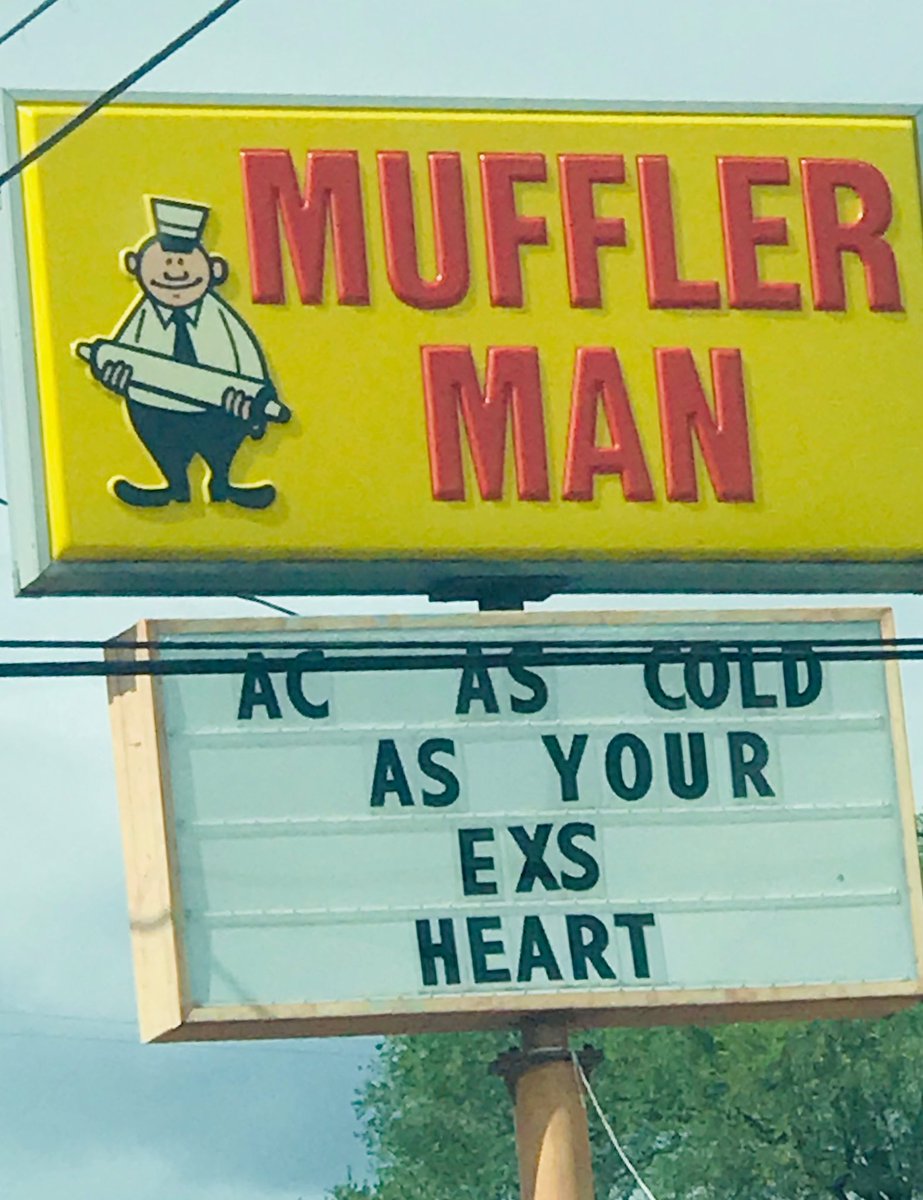 MUFFLER
MAN
AC AS COLD
AS YOUR
EXS
HEART